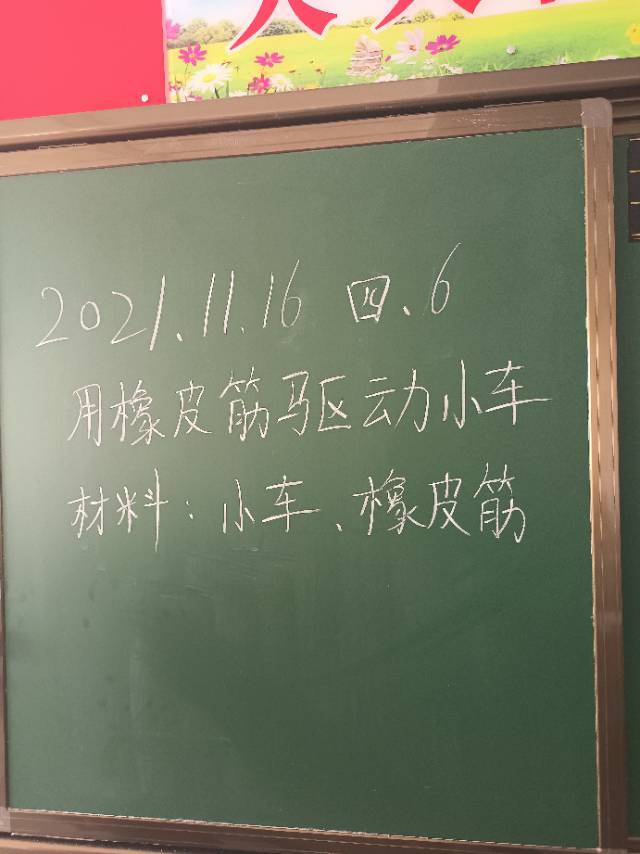 2021.11.16 四、6
用橡皮筋驱动小车
材料：小车、橡皮筋